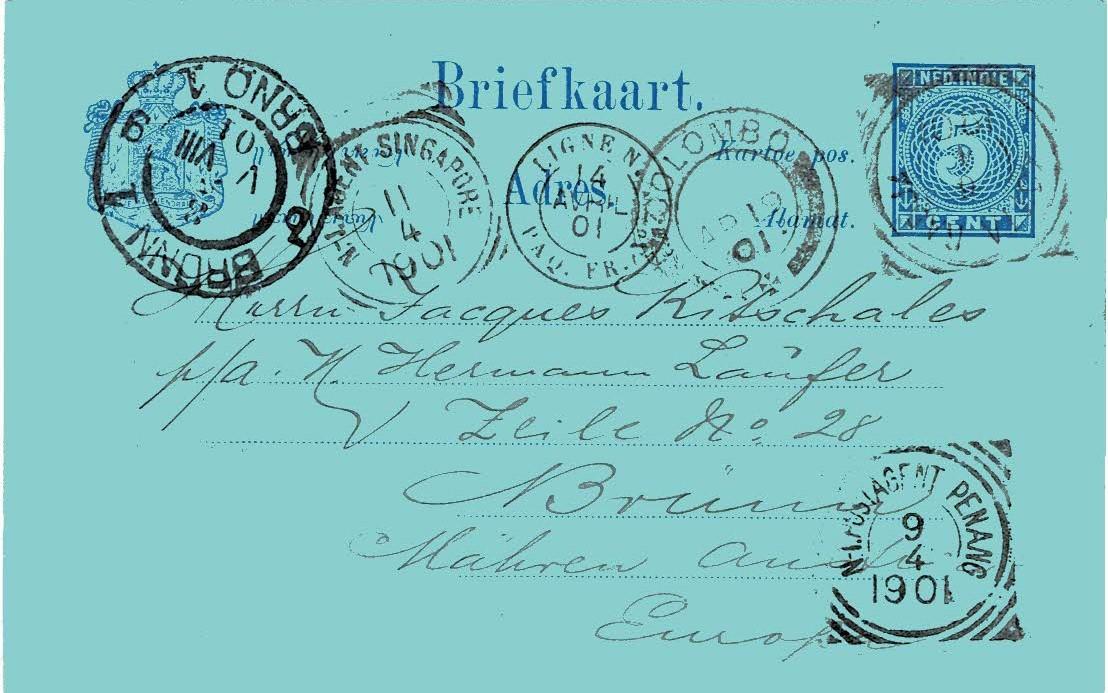 Briefkaart.
NED. INDIE
5
CENT
Kartoe pos.
Adres.
Alamat.
BRÜNN 1
BRNO 1
N-I-AGENT SINGAPORE
11
4
1901
LIGNE N
PAQ. FR.
14
AVRIL
01
COLOMBO
AP 19
01
Herrn Jacques Kitschales
p/a. H. Hermann Laüfer
Zeile No. 28
Brünn
Mähren
Europa
N-I.POSTAGENT PENANG
9
4
1901